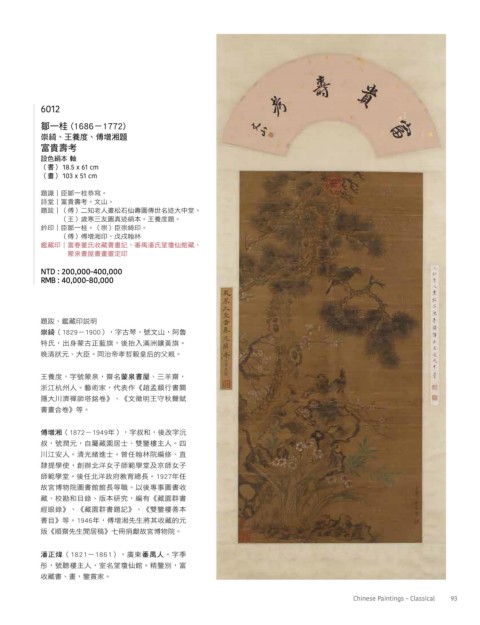 6012
鄒一桂 (1686－1772)
崇綺、王養度、傅增湘題
富貴壽考
設色絹本 軸
（書） 18.5 x 61 cm
（畫） 103 x 51 cm
題識｜臣鄒一桂恭寫。
詩堂｜富貴壽考。文山。
題跋｜（傅）二知老人畫松石仙壽圖傳世名迹大中堂。
（王）歲寒三友圖真迹絹本。王養度題。
鈐印｜臣鄒一桂。（崇）臣崇綺印。
（傅）傅增湘印、戊戌翰林
鑑藏印｜富春董氏收藏書畫記、番禺潘氏望瓊仙館藏、
蒙泉書屋書畫審定印
NTD : 200,000-400,000
RMB : 40,000-80,000
題跋、鑑藏印説明
崇綺（1829－1900），字古琴，號文山，阿魯
特氏，出身蒙古正藍旗，後抬入滿洲鑲黃旗。
晚清狀元、大臣。同治帝孝哲毅皇后的父親。
王養度，字號蒙泉，齋名蒙泉書屋、三羊齋，
浙江杭州人。藝術家，代表作《趙孟頫行書闕
隱大川濟禪師塔銘卷》、《文徵明王守秋聲賦
書畫合卷》等。
傅增湘（1872－1949年），字叔和，後改字沅
叔，號潤元，自屬藏園居士、雙鑒樓主人。四
川江安人。清光緒進士。曾任翰林院編修，直
隸提學使，創辦北洋女子師範學堂及京師女子
師範學堂。後任北洋政府教育總長。1927年任
故宮博物院圖書館館長等職。以後專事圖書收
藏、校勘和目錄、版本研究，編有《藏園群書
經眼錄》、《藏園群書題記》、《雙鑒樓善本
書目》等。1946年，傅增湘先生將其收藏的元
版《順齋先生閒居稿》七冊捐獻故宮博物院。
潘正煒（1821－1861），廣東番禺人。字季
彤，號聽樓主人，室名望瓊仙館。精鑒別，富
收藏書、畫，鑒賞家。
富貴壽考
文山
Chinese Paintings – Classical 93